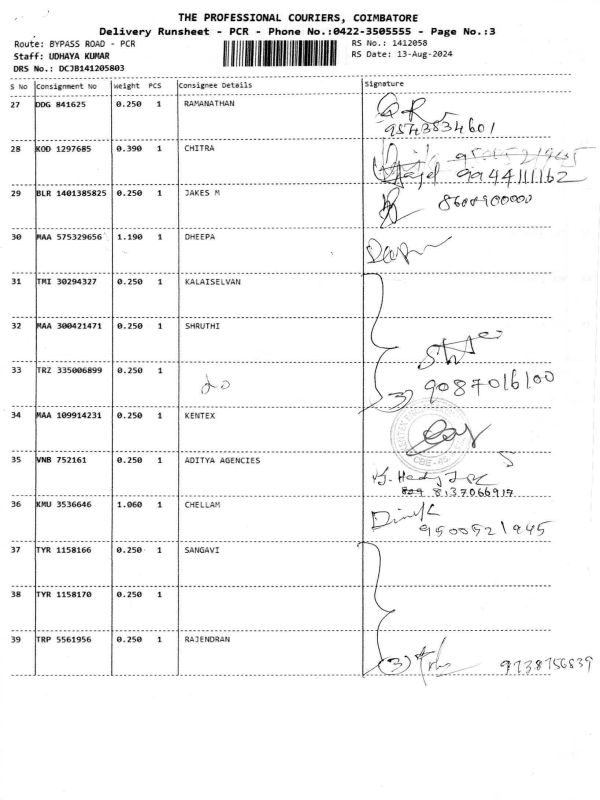 THE PROFESSIONAL COURIERS, COIMBATORE
Delivery Runsheet - PCR - Phone No.:0422-3505555 - Page No.:3
Route: BYPASS ROAD - PCR RS No.: 1412058
Staff: UDHAYA KUMAR RS Date: 13-Aug-2024
DRS No.: DCJB141205803
S No Consignment No Weight PCS Consignee Details Signature
27 DDG 841625 0.250 1 RAMANATHAN
9543834601
28 KOD 1297685 0.390 1 CHITRA
9944111162
29 BLR 1401385825 0.250 1 JAKES M
8608900000
30 MAA 575329656 1.190 1 DHEEPA
31 TMI 30294327 0.250 1 KALAISELVAN
32 MAA 300421471 0.250 1 SHRUTHI
33 TRZ 335006899 0.250 1
3) 9087016100
34 MAA 109914231 0.250 1 KENTEX
35 VNB 752161 0.250 1 ADITYA AGENCIES
8137066917
36 KMU 3536646 1.060 1 CHELLAM
9500521945
37 TYR 1158166 0.250 1 SANGAVI
38 TYR 1158170 0.250 1
39 TRP 5561956 0.250 1 RAJENDRAN
(3) 9738756839